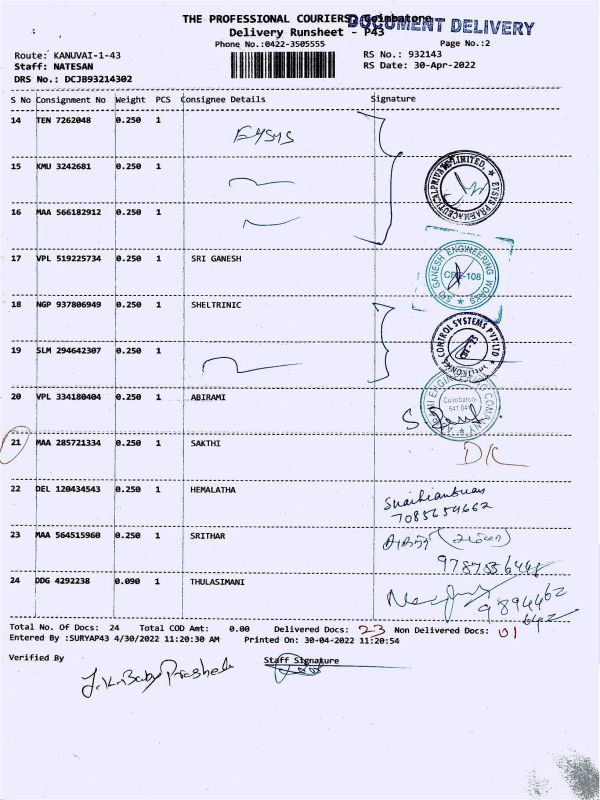 THE PROFESSIONAL COURIERS, Coimbatore
DOCUMENT DELIVERY
Delivery Runsheet - P43
Phone No.:0422-3505555
Page No.:2
Route: KANUVAI-1-43
RS No.: 932143
Staff: NATESAN
RS Date: 30-Apr-2022
DRS No.: DCJB93214302
S No Consignment No Weight PCS Consignee Details Signature
14 TEN 7262048 0.250 1
EYSYS
15 KMU 3242681 0.250 1
EYSYS PHARMACEUTICAL PRIVATE LIMITED
16 MAA 566182912 0.250 1
17 VPL 519225734 0.250 1 SRI GANESH
SRI GANESH ENGINEERING WORKS
CBE-108
18 NGP 937806949 0.250 1 SHELTRINIC
CONTROL SYSTEMS PVT LTD
19 SLM 294642307 0.250 1
20 VPL 334180404 0.250 1 ABIRAMI
Coimbatore
21 MAA 285721334 0.250 1 SAKTHI
D/C
22 DEL 120434543 0.250 1 HEMALATHA
7085659662
23 MAA 564515960 0.250 1 SRITHAR
24 DDG 4292238 0.090 1 THULASIMANI
Total No. Of Docs: 24 Total COD Amt: 0.00 Delivered Docs: 23 Non Delivered Docs: 01
Entered By :SURYAP43 4/30/2022 11:20:30 AM Printed On: 30-04-2022 11:20:54
Verified By
Staff Signature